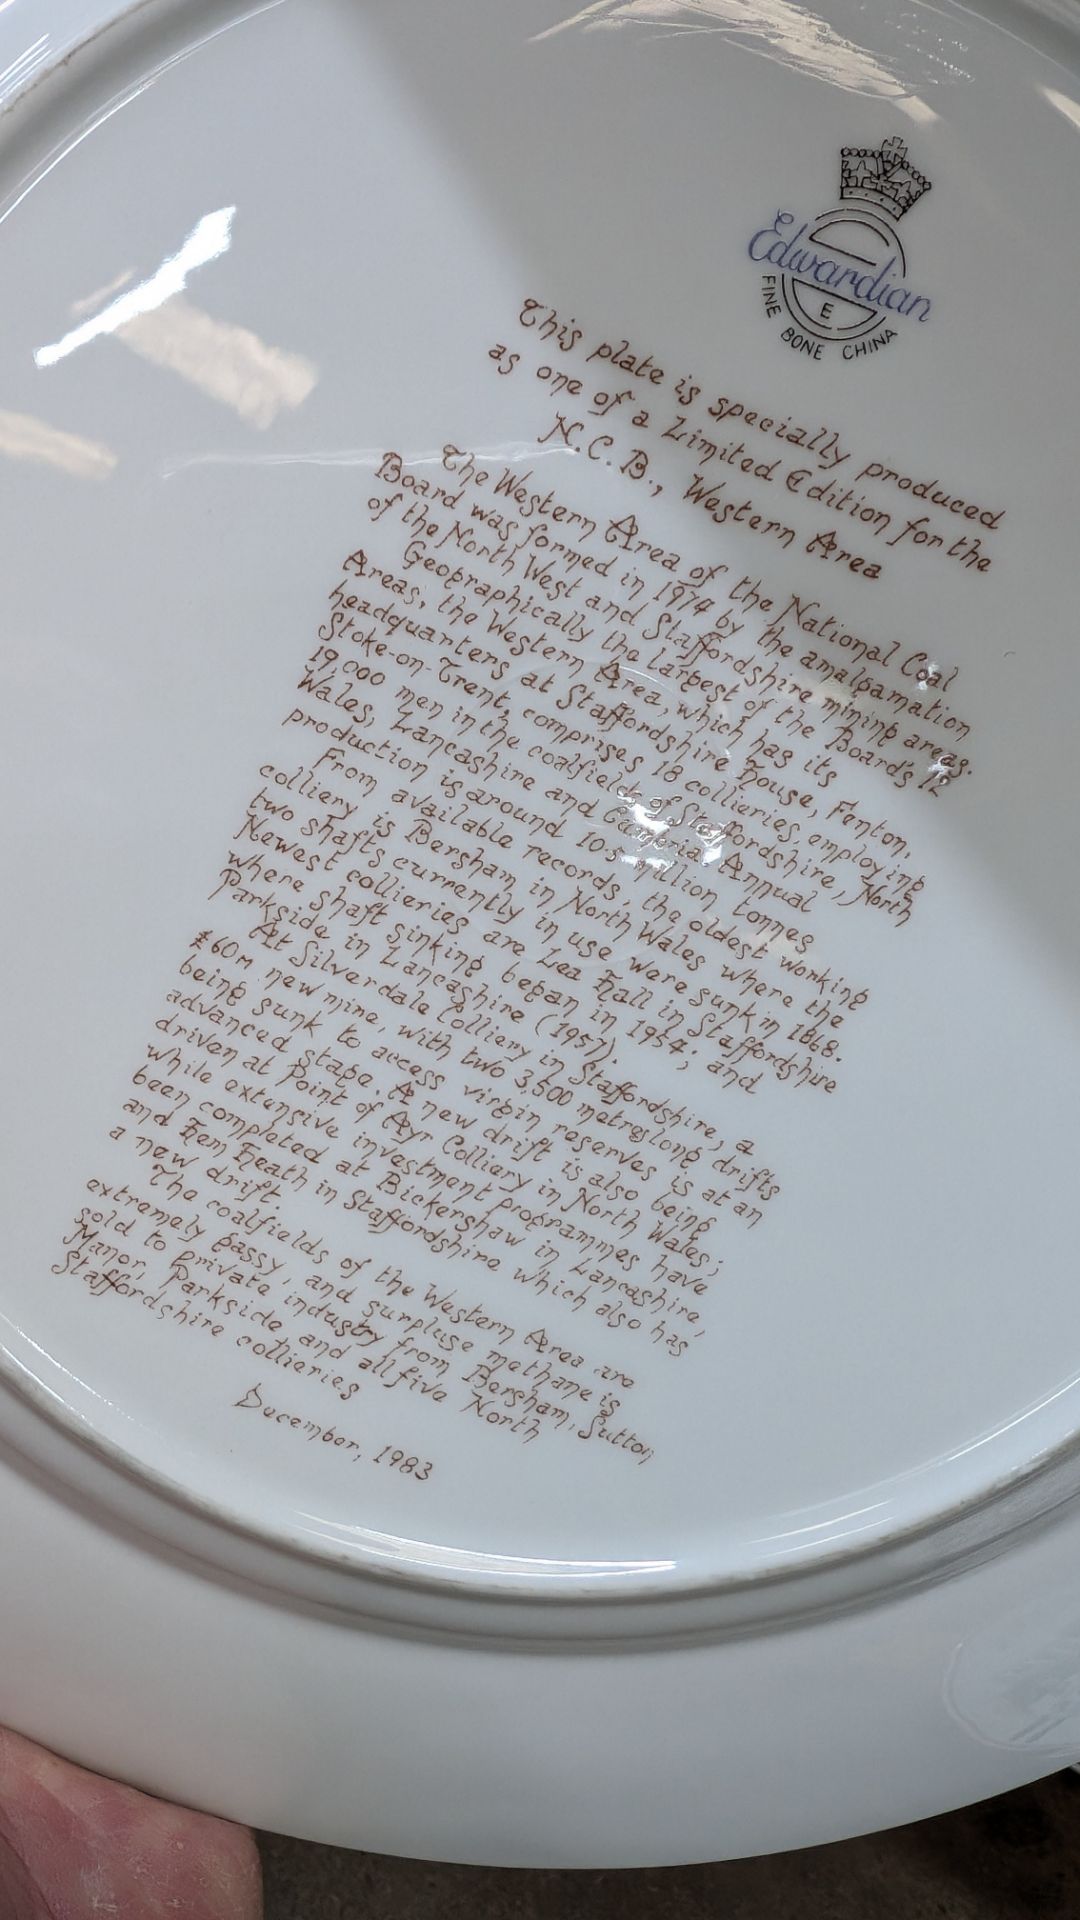 Edwardian
E
FINE BONE CHINA
This plate is specially produced
as one of a Limited Edition for the
N.C.B., Western Area
The Western Area of the National Coal
Board was formed in 1974 by the amalgamation
of the North West and Staffordshire mining areas.
Geographically the largest of the Board's 12
Areas, the Western Area, which has its
headquarters at Staffordshire House, Fenton,
Stoke-on-Trent, comprises 18 collieries, employing
19,000 men in the coalfields of Staffordshire, North
Wales, Lancashire and Cumbria. Annual
production is around 10.5 million tonnes
From available records, the oldest working
colliery is Bersham in North Wales where the
two shafts currently in use were sunk in 1868.
Newest collieries are Lea Hall in Staffordshire
where shaft sinking began in 1954; and
Parkside in Lancashire (1957).
At Silverdale Colliery in Staffordshire, a
£60m new mine, with two 3,500 metres long drifts
being sunk to access virgin reserves is at an
advanced stage. A new drift is also being
driven at Point of Ayr Colliery in North Wales;
while extensive investment programmes have
been completed at Bickershaw in Lancashire,
and Hem Heath in Staffordshire which also has
a new drift.
The coalfields of the Western Area are
extremely gassy, and surpluse methane is
sold to private industry from Bersham, Sutton
Manor, Parkside and all five North
Staffordshire collieries
December, 1983